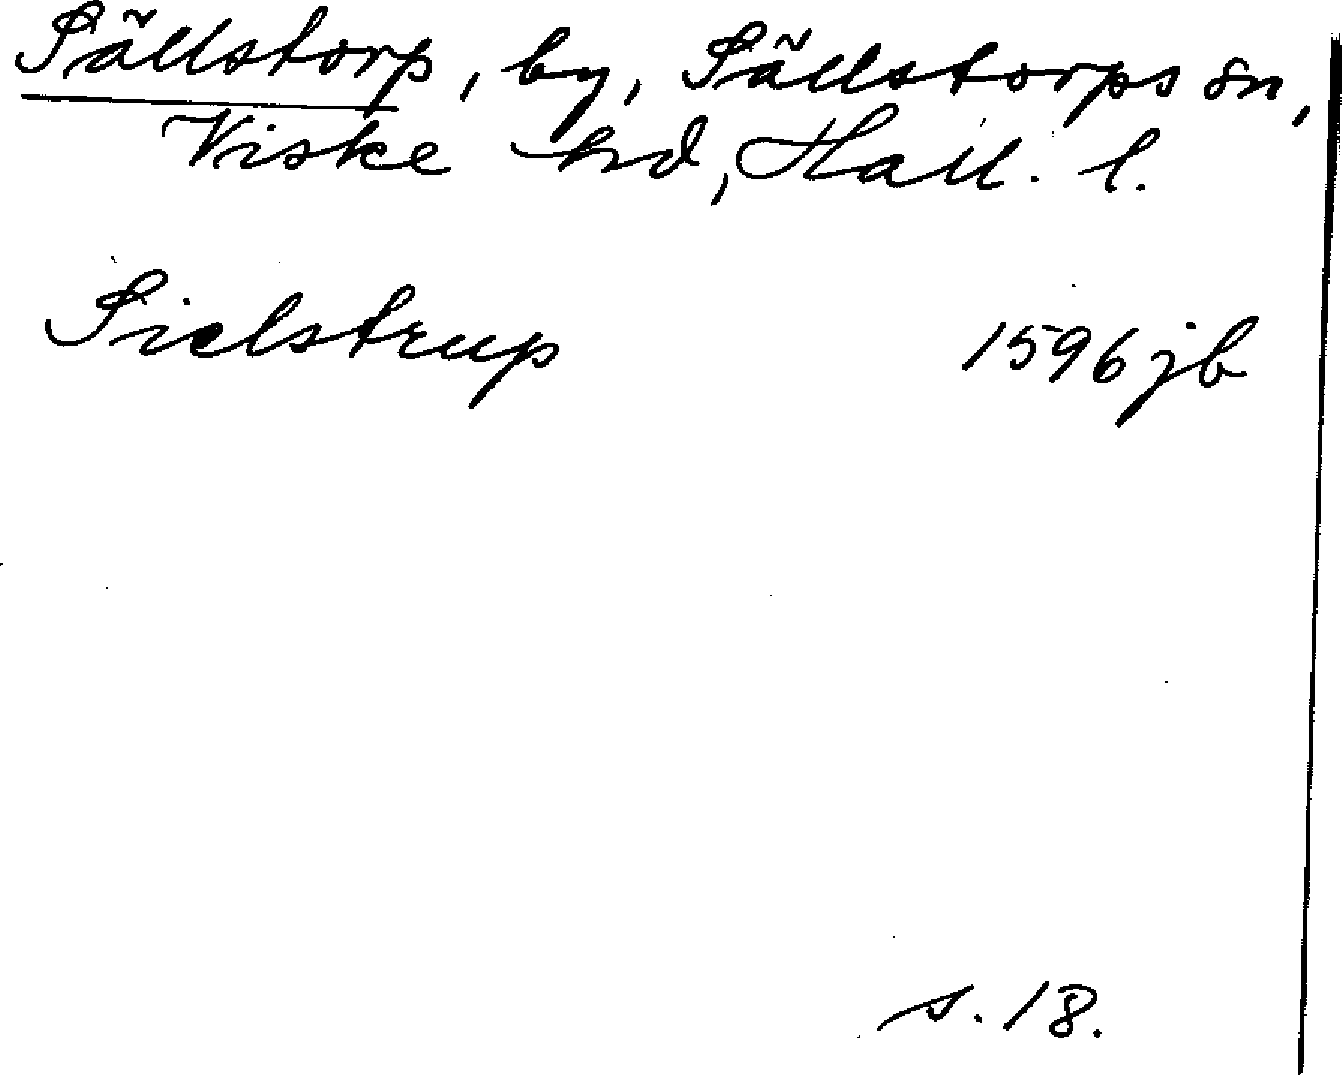 Sällstorp, by, Sällstorps sn,
Viske hd, Hall. l.
Sielstrup 1596 jb
s. 18.